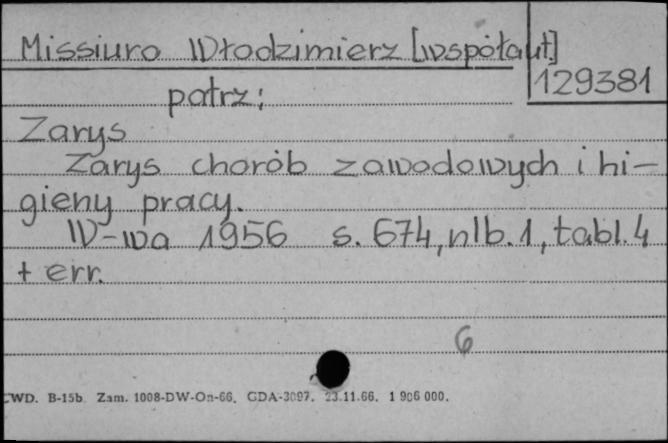 Missiuro Włodzimierz [współaut]
129381
patrz:
Zarys
Zarys chorób zawodowych i hi-
gieny pracy.
W-wa 1956 s. 674, nlb. 1, tabl. 4
+ err.
6
CWD. B-15b. Zam. 1008-DW-On-66. GDA-3097. 23.11.66. 1 906 000.